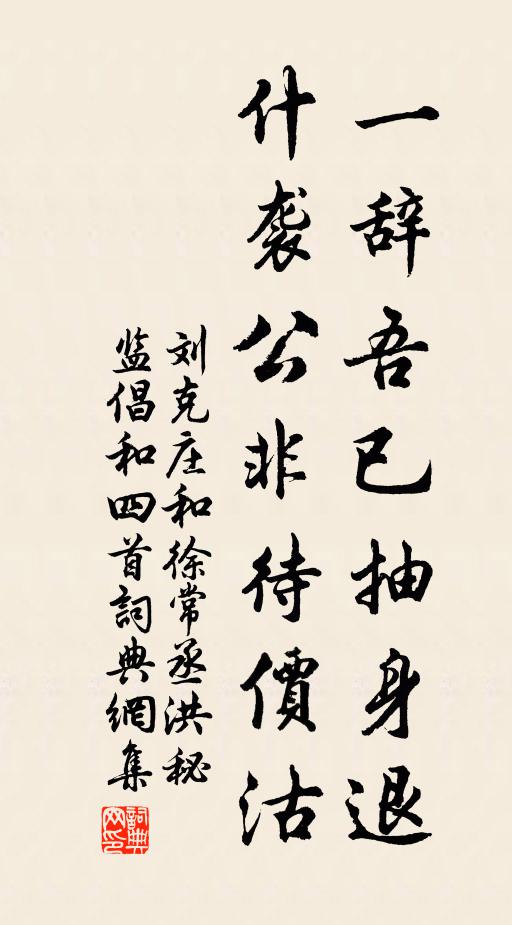 一辞吾已抽身退
什袭公非待價沽
刘克庄和徐常丞洪秘
监倡和四首詞典網集
詞典
网印